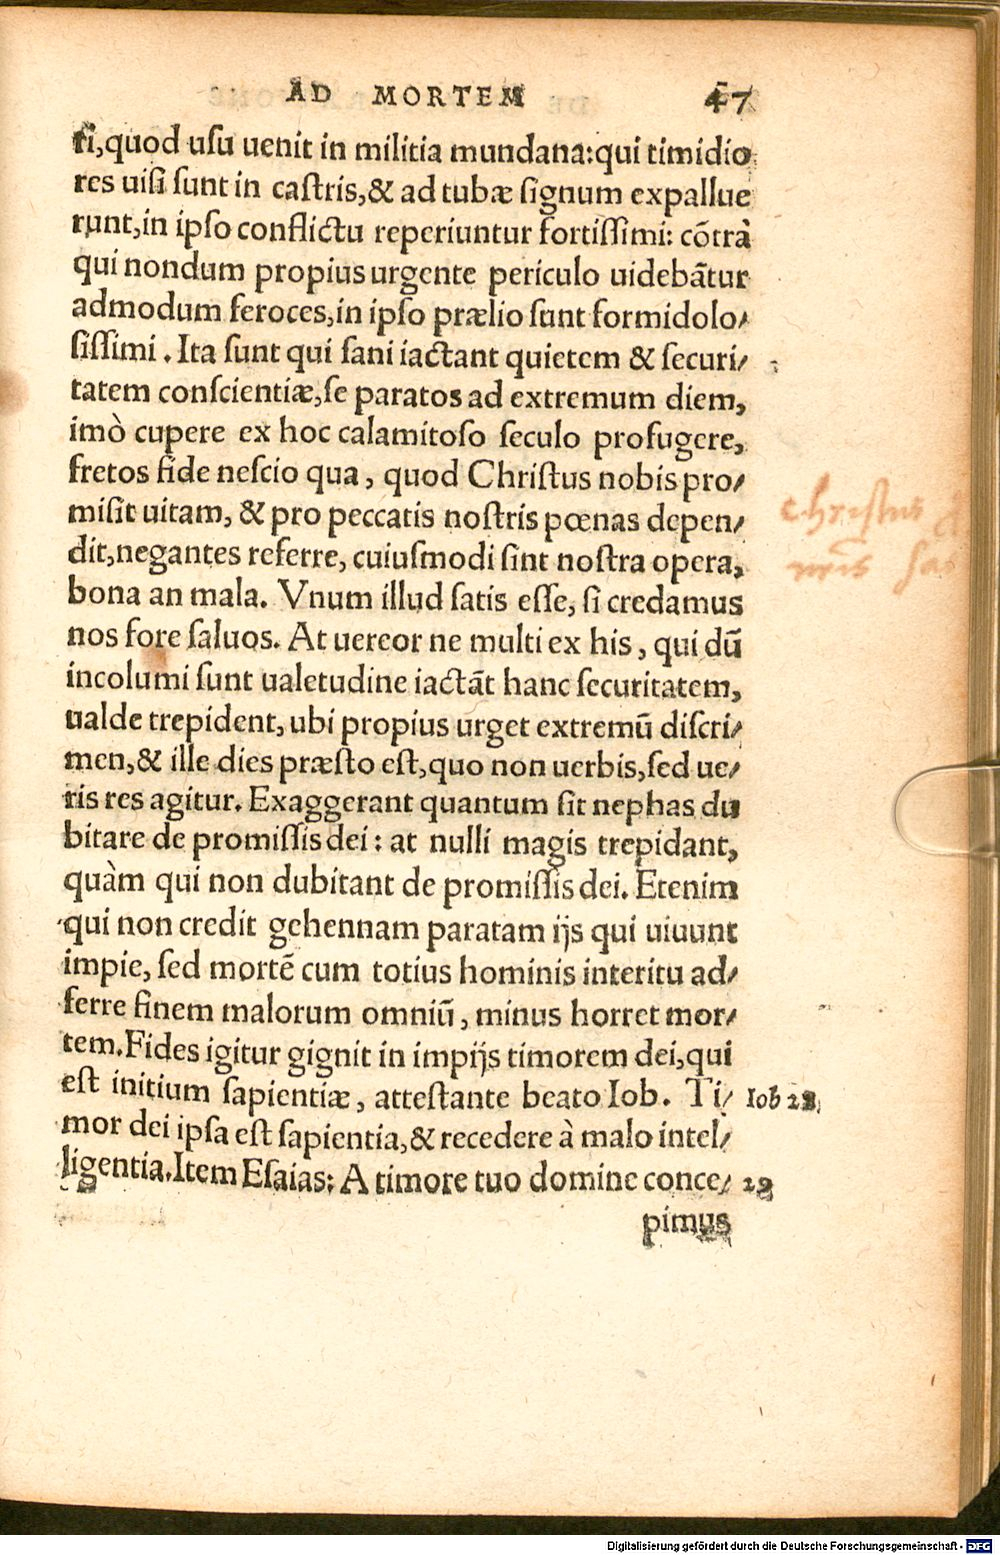 AD MORTEM 47
ſi,quod uſu uenit in militia mundana:qui timidio
res uiſi ſunt in caſtris,& ad tubæ ſignum expallue
runt,in ipſo conflictu reperiuntur fortiſſimi: cõtrà
qui nondum propius urgente periculo uidebãtur
admodum feroces,in ipſo prælio ſunt formidolo⸗
ſiſſimi . Ita ſunt qui ſani iactant quietem & ſecuri⸗
tatem conſcientiæ,ſe paratos ad extremum diem,
imò cupere ex hoc calamitoſo ſeculo profugere,
fretos fide neſcio qua, quod Chriſtus nobis pro⸗
miſit uitam, & pro peccatis noſtris pœnas depen⸗
dit,negantes referre, cuiuſmodi ſint noſtra opera,
bona an mala. Vnum illud ſatis eſſe, ſi credamus
nos fore ſaluos. At uereor ne multi ex his, qui dũ
incolumi ſunt ualetudine iactãt hanc ſecuritatem,
ualde trepident, ubi propius urget extremũ diſcri⸗
men,& ille dies præſto eſt,quo non uerbis,ſed ue⸗
ris res agitur. Exaggerant quantum ſit nephas du
bitare de promiſſis dei: at nulli magis trepidant,
quàm qui non dubitant de promiſſis dei. Etenim
qui non credit gehennam paratam ijs qui uiuunt
impie, ſed mortẽ cum totius hominis interitu ad⸗
ferre finem malorum omniũ, minus horret mor⸗
tem.Fides igitur gignit in impijs timorem dei,qui
eſt initium ſapientiæ, atteſtante beato Iob. Ti⸗ Iob 28
mor dei ipſa eſt ſapientia,& recedere à malo intel⸗
ligentia.Item Eſaias: A timore tuo domine conce⸗
pimus
Chriſtus
Digitalisierung gefördert durch die Deutsche Forschungsgemeinschaft - DFG